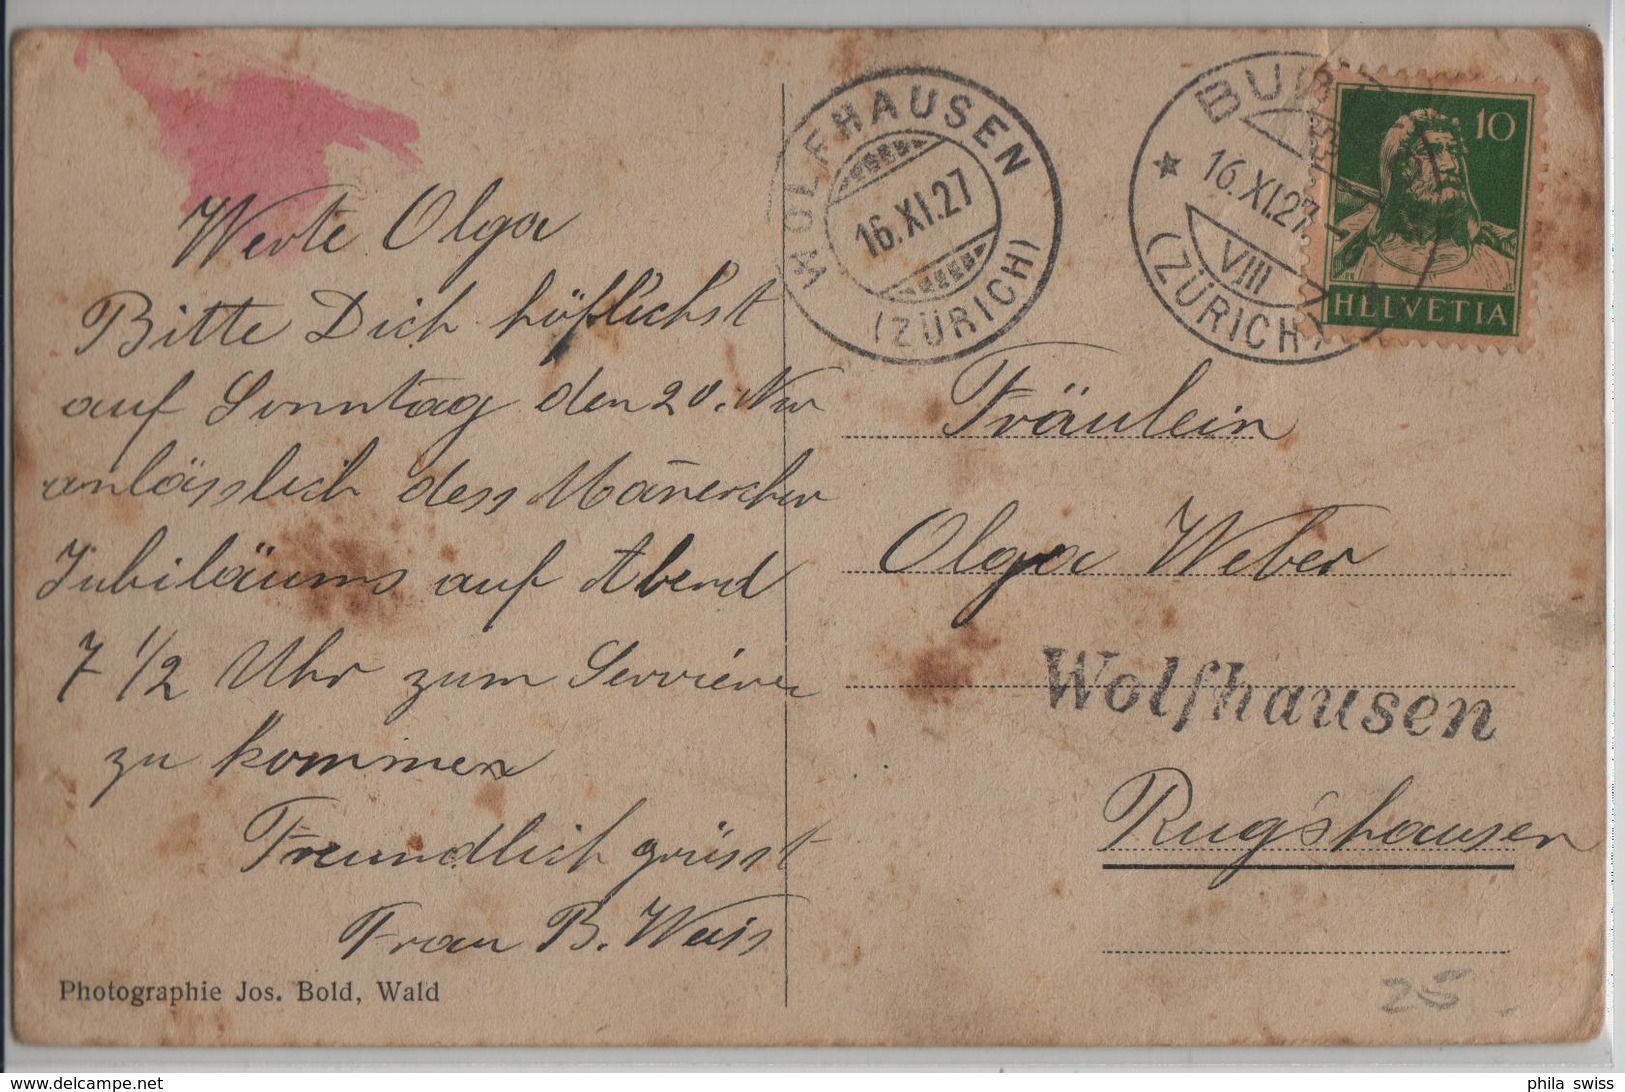 Werte Olga
Bitte Dich höflichst
auf Sonntag den 20. Nov
anlässlich dess Mañerchor
Jubiläums auf Abend
7 1/2 Uhr zum Servieren
zu kommen
Freundlich grüsst
Frau B. Weiss
Photographie Jos. Bold, Wald
WOLFHAUSEN
16.XI.27
(ZÜRICH)
16.XI.27
VIII
(ZÜRICH)
10
HELVETIA
Fräulein
Olga Weber
Wolfhausen
Rugshausen
25
phila swiss